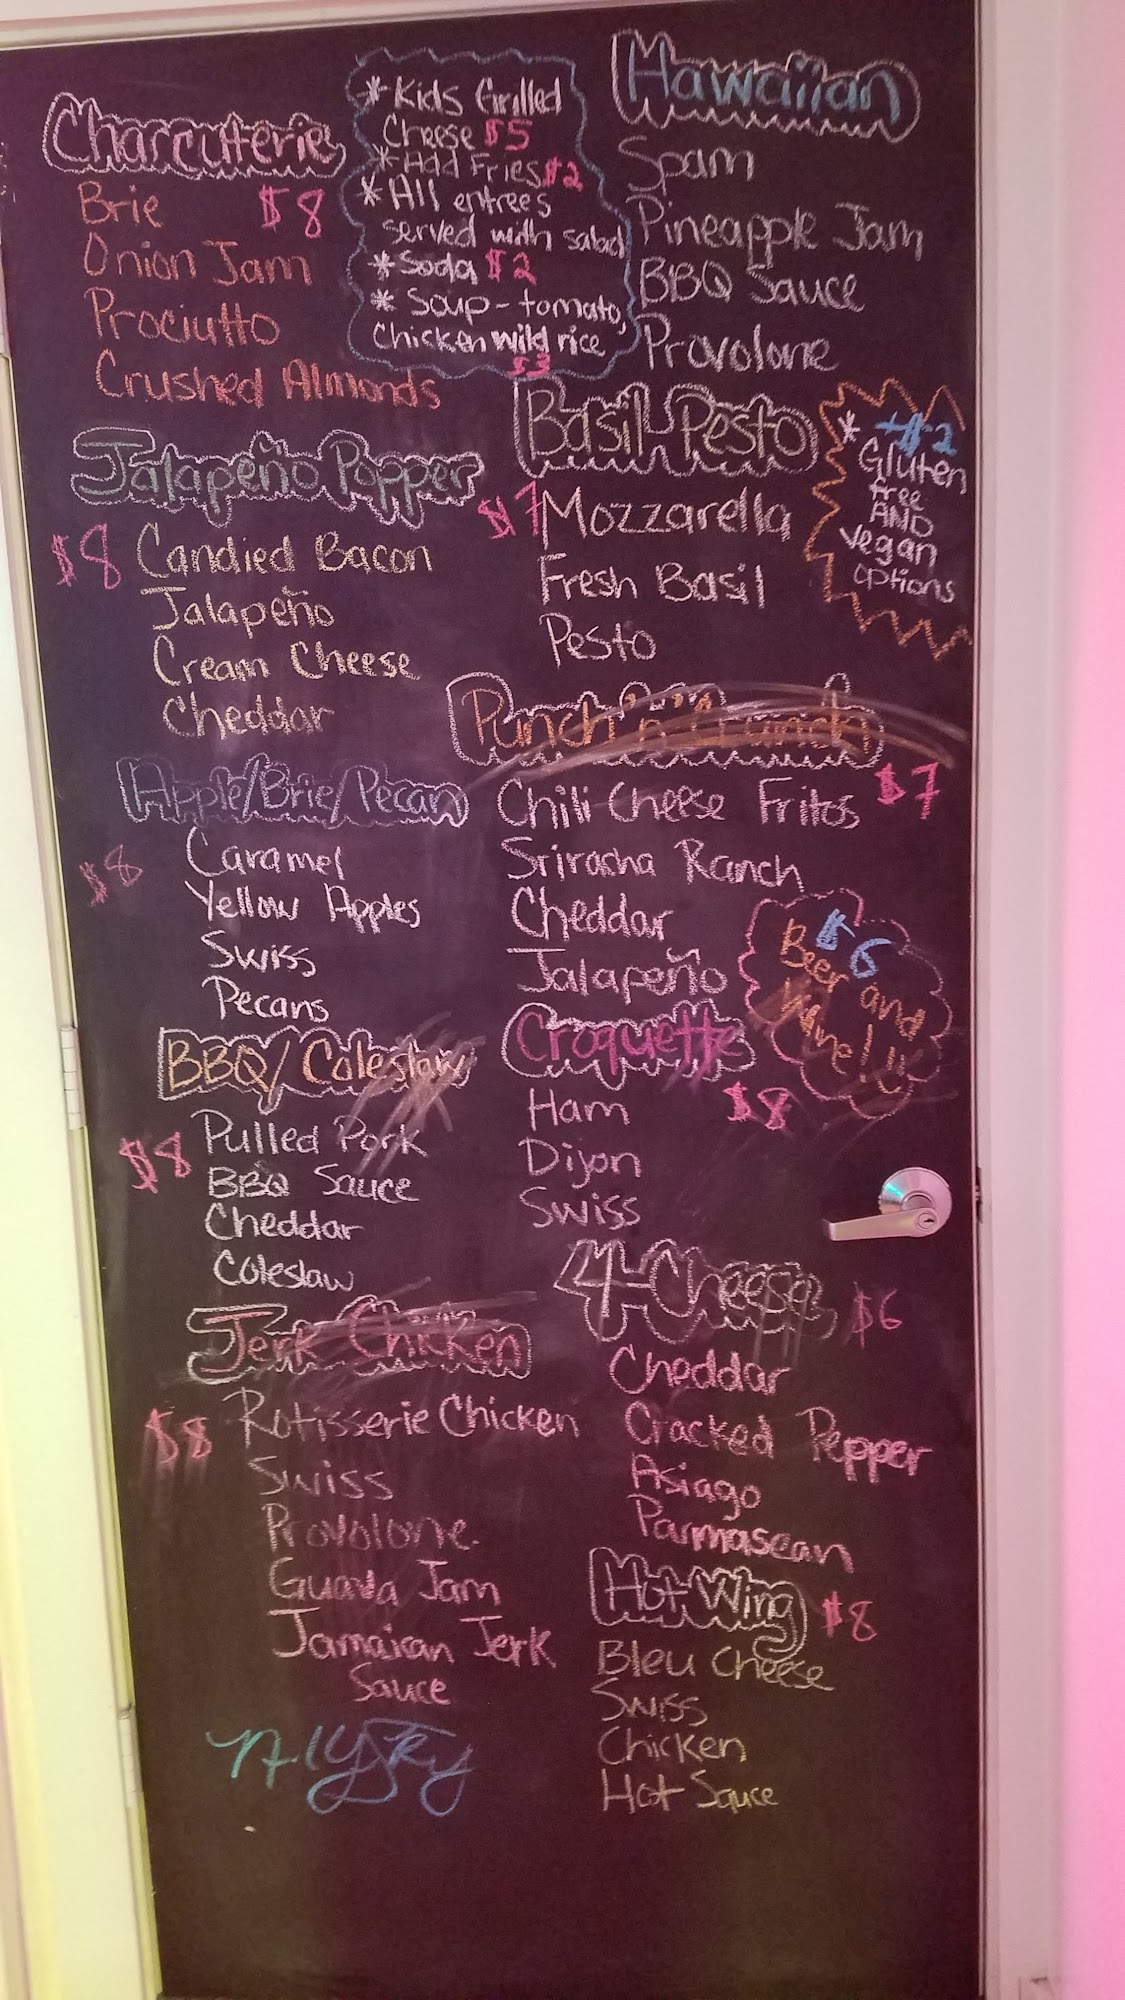 Charcuterie
Brie $8
Onion Jam
Prociutto
Crushed Almonds
* Kids Grilled
Cheese $5
* Add Fries $2
* All entrees
served with salad
* Soda $2
* Soup - tomato,
Chicken wild rice
$3
Hawaiian
Spam
Pineapple Jam
BBQ Sauce
Provolone
Jalapeño Popper
$8 Candied Bacon
Jalapeño
Cream Cheese
Cheddar
Basil-Pesto
$7 Mozzarella
Fresh Basil
Pesto
* +$2
Gluten
free
AND
vegan
options
Apple/Brie/Pecan
$8 Caramel
Yellow Apples
Swiss
Pecans
Punch 'n' Crunch
Chili Cheese Fritos $7
Sriracha Ranch
Cheddar
Jalapeño
$6
Beer and
Wine!
BBQ/Coleslaw
$8 Pulled Pork
BBQ Sauce
Cheddar
Coleslaw
Croquette
Ham $8
Dijon
Swiss
Jerk Chicken
$8 Rotisserie Chicken
Swiss
Provolone
Guava Jam
Jamaican Jerk
Sauce
4-Cheese $6
Cheddar
Cracked Pepper
Asiago
Parmasean
Hot Wing $8
Bleu Cheese
Swiss
Chicken
Hot Sauce